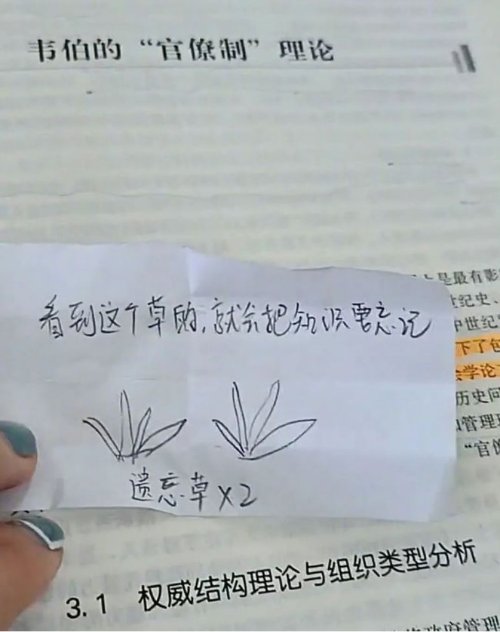 韦伯的“官僚制”理论
看到这个草的，就会把知识要忘记
上是最有影
世纪史、
中世纪"
下了包
会学论
历史问
和管理
“官僚
遗忘草x2
3.1 权威结构理论与组织类型分析
政府管理